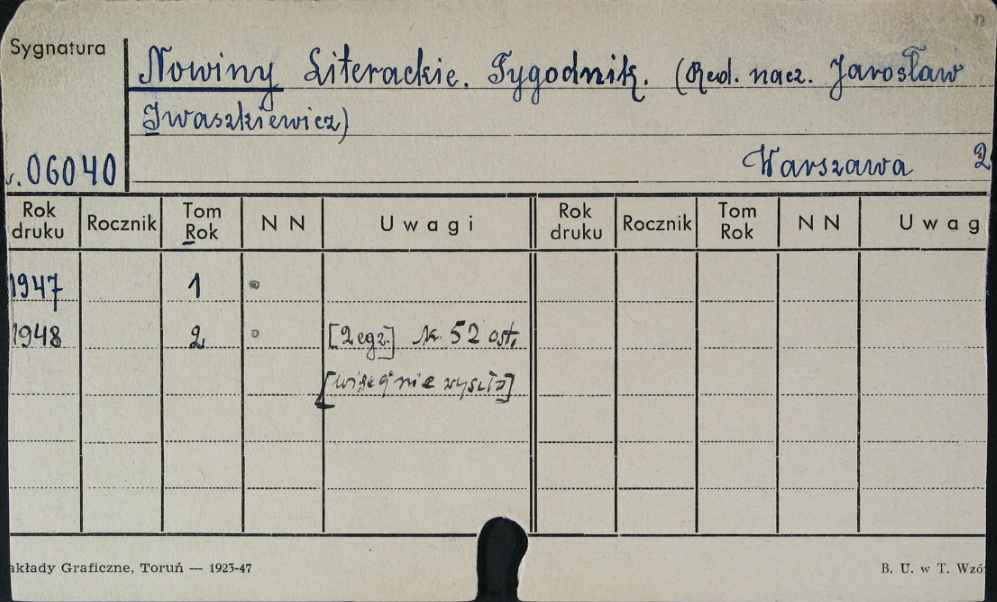 Sygnatura
Nowiny Literackie. Tygodnik. (Red. nacz. Jarosław
Iwaszkiewicz)
06040
Warszawa 2
Rok druku Rocznik Tom Rok N N Uwagi Rok druku Rocznik Tom Rok N N Uwag
1947 1
1948 2 [2 egz.] nr 52 ost.
[więcej nie wyszło]
akłady Graficzne, Toruń — 1923-47 B. U. w T. Wzó